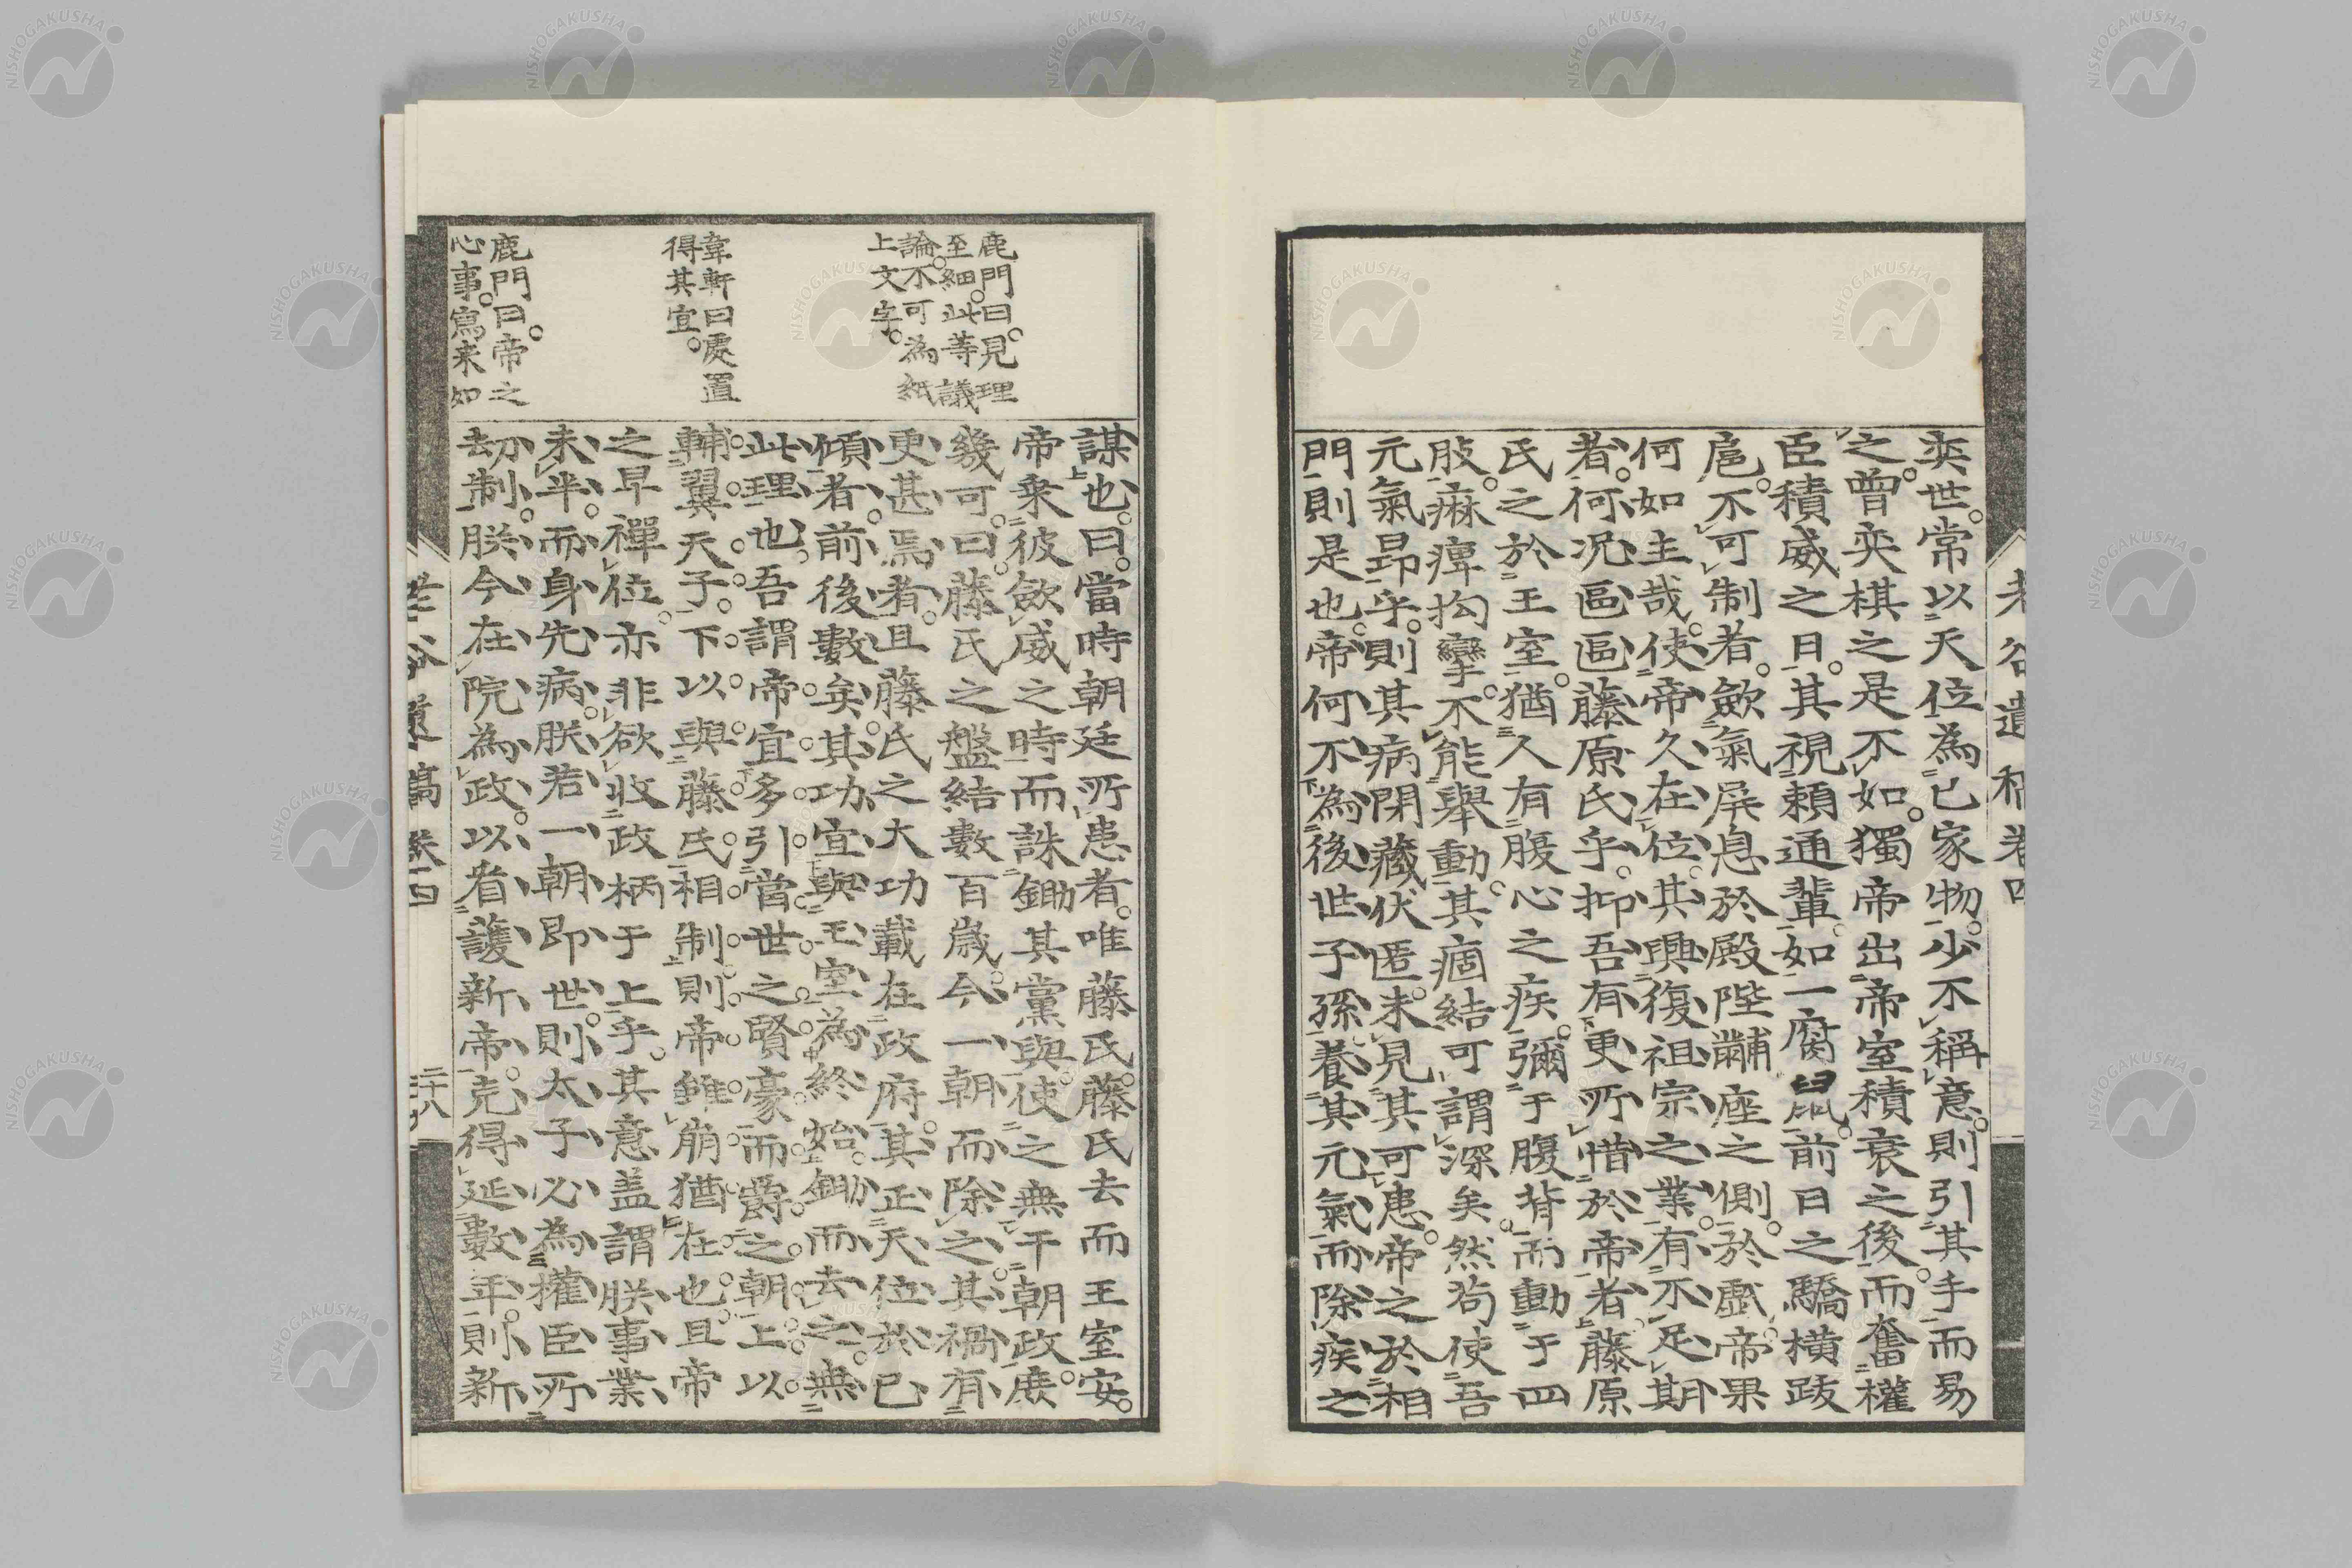 奕世常以天位為已家物少不稱意則引其手而易
之曾奕棋之是不如獨帝出帝室積衰之後而奮權
臣積威之日其視賴通輩如一腐鼠前日之驕橫跋
扈不可制者歛氣屏息於殿陛黼座之側於戲帝果
何如主哉使帝久在位其興復祖宗之業有不足期
者何況區區藤原氏乎抑吾有更所惜於帝者藤原
氏之於王室猶人有腹心之疾彌于腹背而動于四
肢痳痺拘攣不能舉動其痼結可謂深矣然苟使吾
元氣昂乎則其病閉藏伏匿未見其可患帝之於相
門則是也帝何不為後世子孫養其元氣而除疾之
謀也曰當時朝廷所患者唯藤氏藤氏去而王室安
帝乘彼歛威之時而誅鋤其黨與使之無干朝政庶
幾可曰藤氏之盤結數百歲今一朝而除之其禍有
更甚焉者且藤氏之大功載在政府其正天位於已
傾者前後數矣其功宜與王室為終始鋤而去之無
此理也吾謂帝宜多引當世之賢豪而爵之朝上以
輔翼天子下以與藤氏相制則帝雖崩猶在也且帝
之早禪位亦非欲收政柄于上乎其意盖謂朕事業
未半而身先病朕若一朝即世則太子必為權臣所
劫制朕今在院為政以看護新帝克得延數年則新
鹿門曰見理
至細此等議
論不可為紙
上文字
韋軒曰處置
得其宜
鹿門曰帝之
心事寫来如
二十八
NISHOGAKUSHA